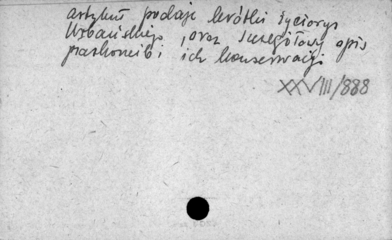 artykuł podaje krótki życiorys
Urbańskiego, oraz szczegółowy opis
i ich konserwacji.
XXVIII/888